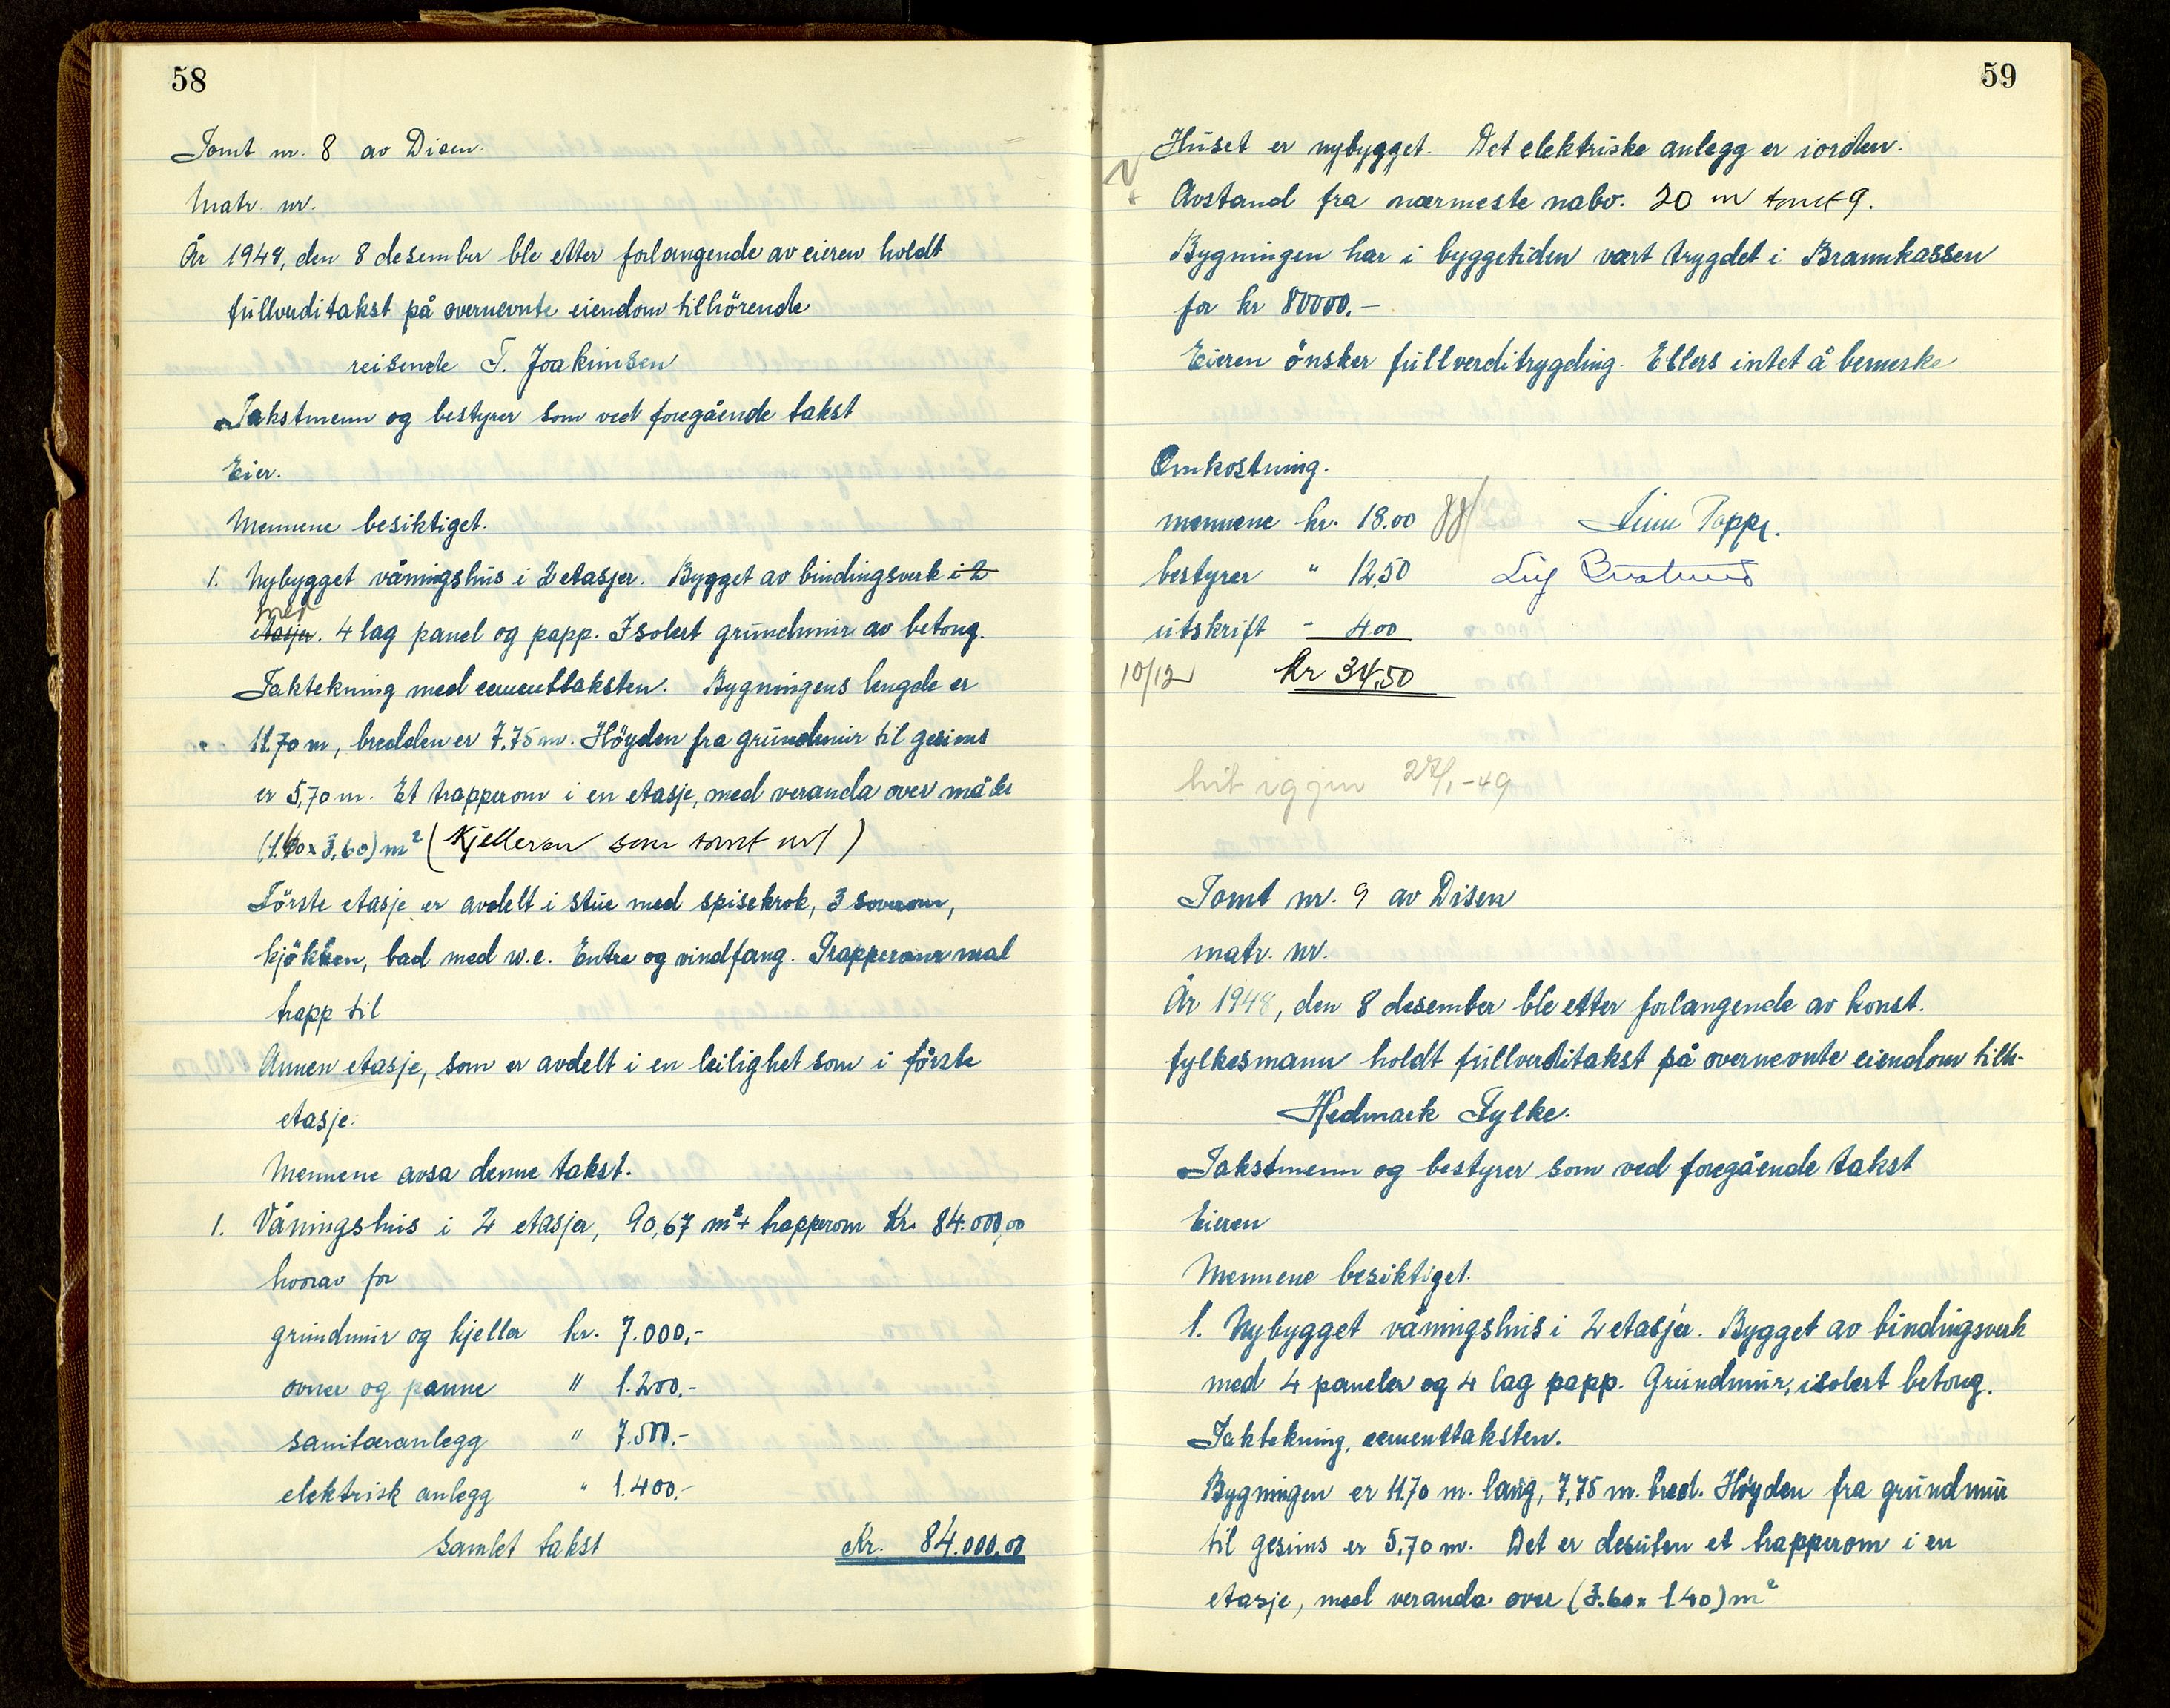 58
Tomt nr. 8 av Disen.
Matr. nr.
År 1948, den 8 desember ble etter forlangende av eieren holdt
fullverditakst på overnevnte eiendom tilhörende
reisende T. Joakimsen
Takstmenn og bestyrer som ved foregående takst
Eier.
Mennene besiktiget.
1. Nybygget våningshus i 2 etasjer. Bygget av bindingsverk i 2
med
etasjer. 4 lag panel og papp. Isolert grundmur av betong.
Taktekning med cementtaksten. Bygningens lengde er
11.70 m, bredden er 7.75 m. Höyden fra grundmur til gesims
er 5,70 m. Et trapperom i en etasje, med veranda over måler
(1.40 x 3,60) m² (Kjelleren som tomt nr 1)
Förste etasje er avdelt i stue med spisekrok, 3 soverom,
kjökken, bad med w.c. Entre og vindfang. Trapperom med
trapp til
Annen etasje, som er avdelt i en leilighet som i förste
etasje.
Mennene avsa denne takst.
1. Våningshus i 2 etasjer, 90,67 m² + trapperom Kr. 84.000,00
hvorav for
grundmur og kjeller kr. 7.000,-
ovner og panne " 1.200.-
sanitæranlegg " 7.500.-
elektrisk anlegg " 1.400.-
Samlet takst Kr. 84.000,00
59
Huset er nybygget. Det elektriske anlegg er iorden.
Avstand fra nærmeste nabo. 20 m tomt 9.
Bygningen har i byggetiden vært trygdet i Brannkassen
for kr 80000.-
Eieren önsker fullverditrygding. Ellers intet å bemerke
Omkostning.
mennene kr. 18.00
bestyrer " 12,50
utskrift - 4 00
10/12 Kr 34,50
27/1-49
Tomt nr. 9 av Disen
matr. nr.
År 1948, den 8 desember ble etter forlangende av konst.
fylkesmann holdt fullverditakst på overnevnte eiendom tilh-
Hedmark Fylke.
Takstmenn og bestyrer som ved foregående takst
Eieren
Mennene besiktiget.
1. Nybygget våningshus i 2 etasjer. Bygget av bindingsverk
med 4 paneler og 4 lag papp. Grundmur, isolert betong.
Taktekning, cementtaksten.
Bygningen er 11.70 m. lang, 7,75 m. bred. Höyden fra grundmur
til gesims er 5,70 m. Det er desuten et trapperom i en
etasje, med veranda over (3.60 x 1.40) m²